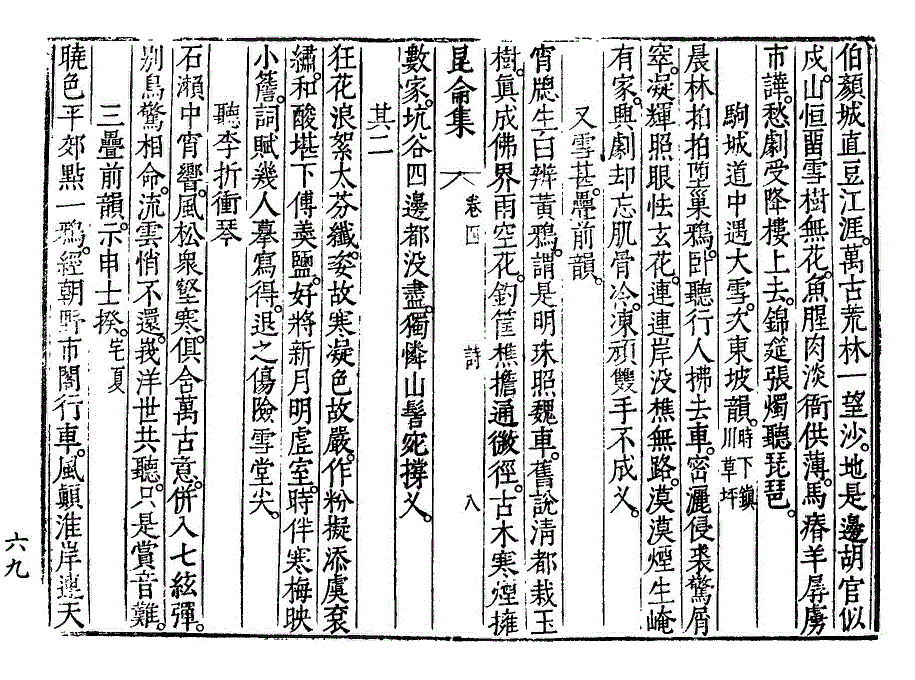 伯顏城直豆江涯。萬古荒林一望沙。地是邊胡官似
戍。山恒留雪樹無花。魚腥肉淡衙供薄。馬瘠羊孱虜
市譁。愁劇受降樓上去。錦筵張燭聽琵琶。
駒城道中遇大雪。次東坡韻。時下鎭川草坪
晨林拍拍墮巢鴉。臥聽行人拂去車。密灑侵裘驚屑
窣。凝輝照眼怯玄花。連連岸没樵無路。漠漠煙生崦
有家。興劇却忘肌骨冷。凍頑雙手不成叉。
又雪甚。疊前韻。
宵牕生白辨黃鴉。謂是明珠照魏車。舊說淸都栽玉
樹。眞成佛界雨空花。釣筐樵擔通微徑。古木寒煙擁
昆侖集 卷四 詩 八
數家。坑谷四邊都没盡。獨憐山髻宛撐叉。
其二
狂花浪絮太芬纖。姿故寒凝色故嚴。作粉擬添虞袞
繡。和酸堪下傅羹鹽。好將新月明虛室。時伴寒梅映
小簷。詞賦幾人摹寫得。退之傷險雪堂尖。
聽李折衝琴
石瀨中宵響。風松衆壑寒。俱含萬古意。併入七絃彈。
別鳥驚相命。流雲悄不還。峩洋世共聽。只是賞音難。
三疊前韻。示申士揆。宅夏
曉色平郊點一鴉。經朝野市閣行車。風顚淮岸連天
六九